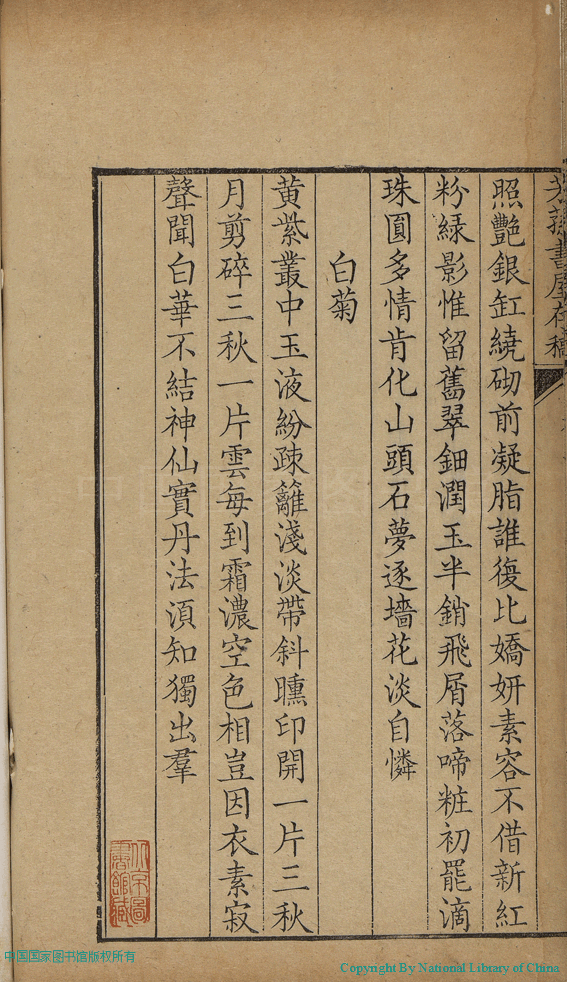 書屋存稿
照艷銀缸繞砌前凝脂誰復比嬌妍素容不借新紅
粉綠影惟留舊翠鈿潤玉半銷飛屑落啼粧初罷滴
珠圓多情肯化山頭石夢逐墻花淡自憐
白菊
黃紫叢中玉液紛疎籬淺淡帶斜曛印開一片三秋
月剪碎三秋一片雲每到霜濃空色相豈因衣素寂
聲聞白華不結神仙實丹法須知獨出羣
北京圖書館藏
中国国家图书馆版权所有
Copyright By National Library of China